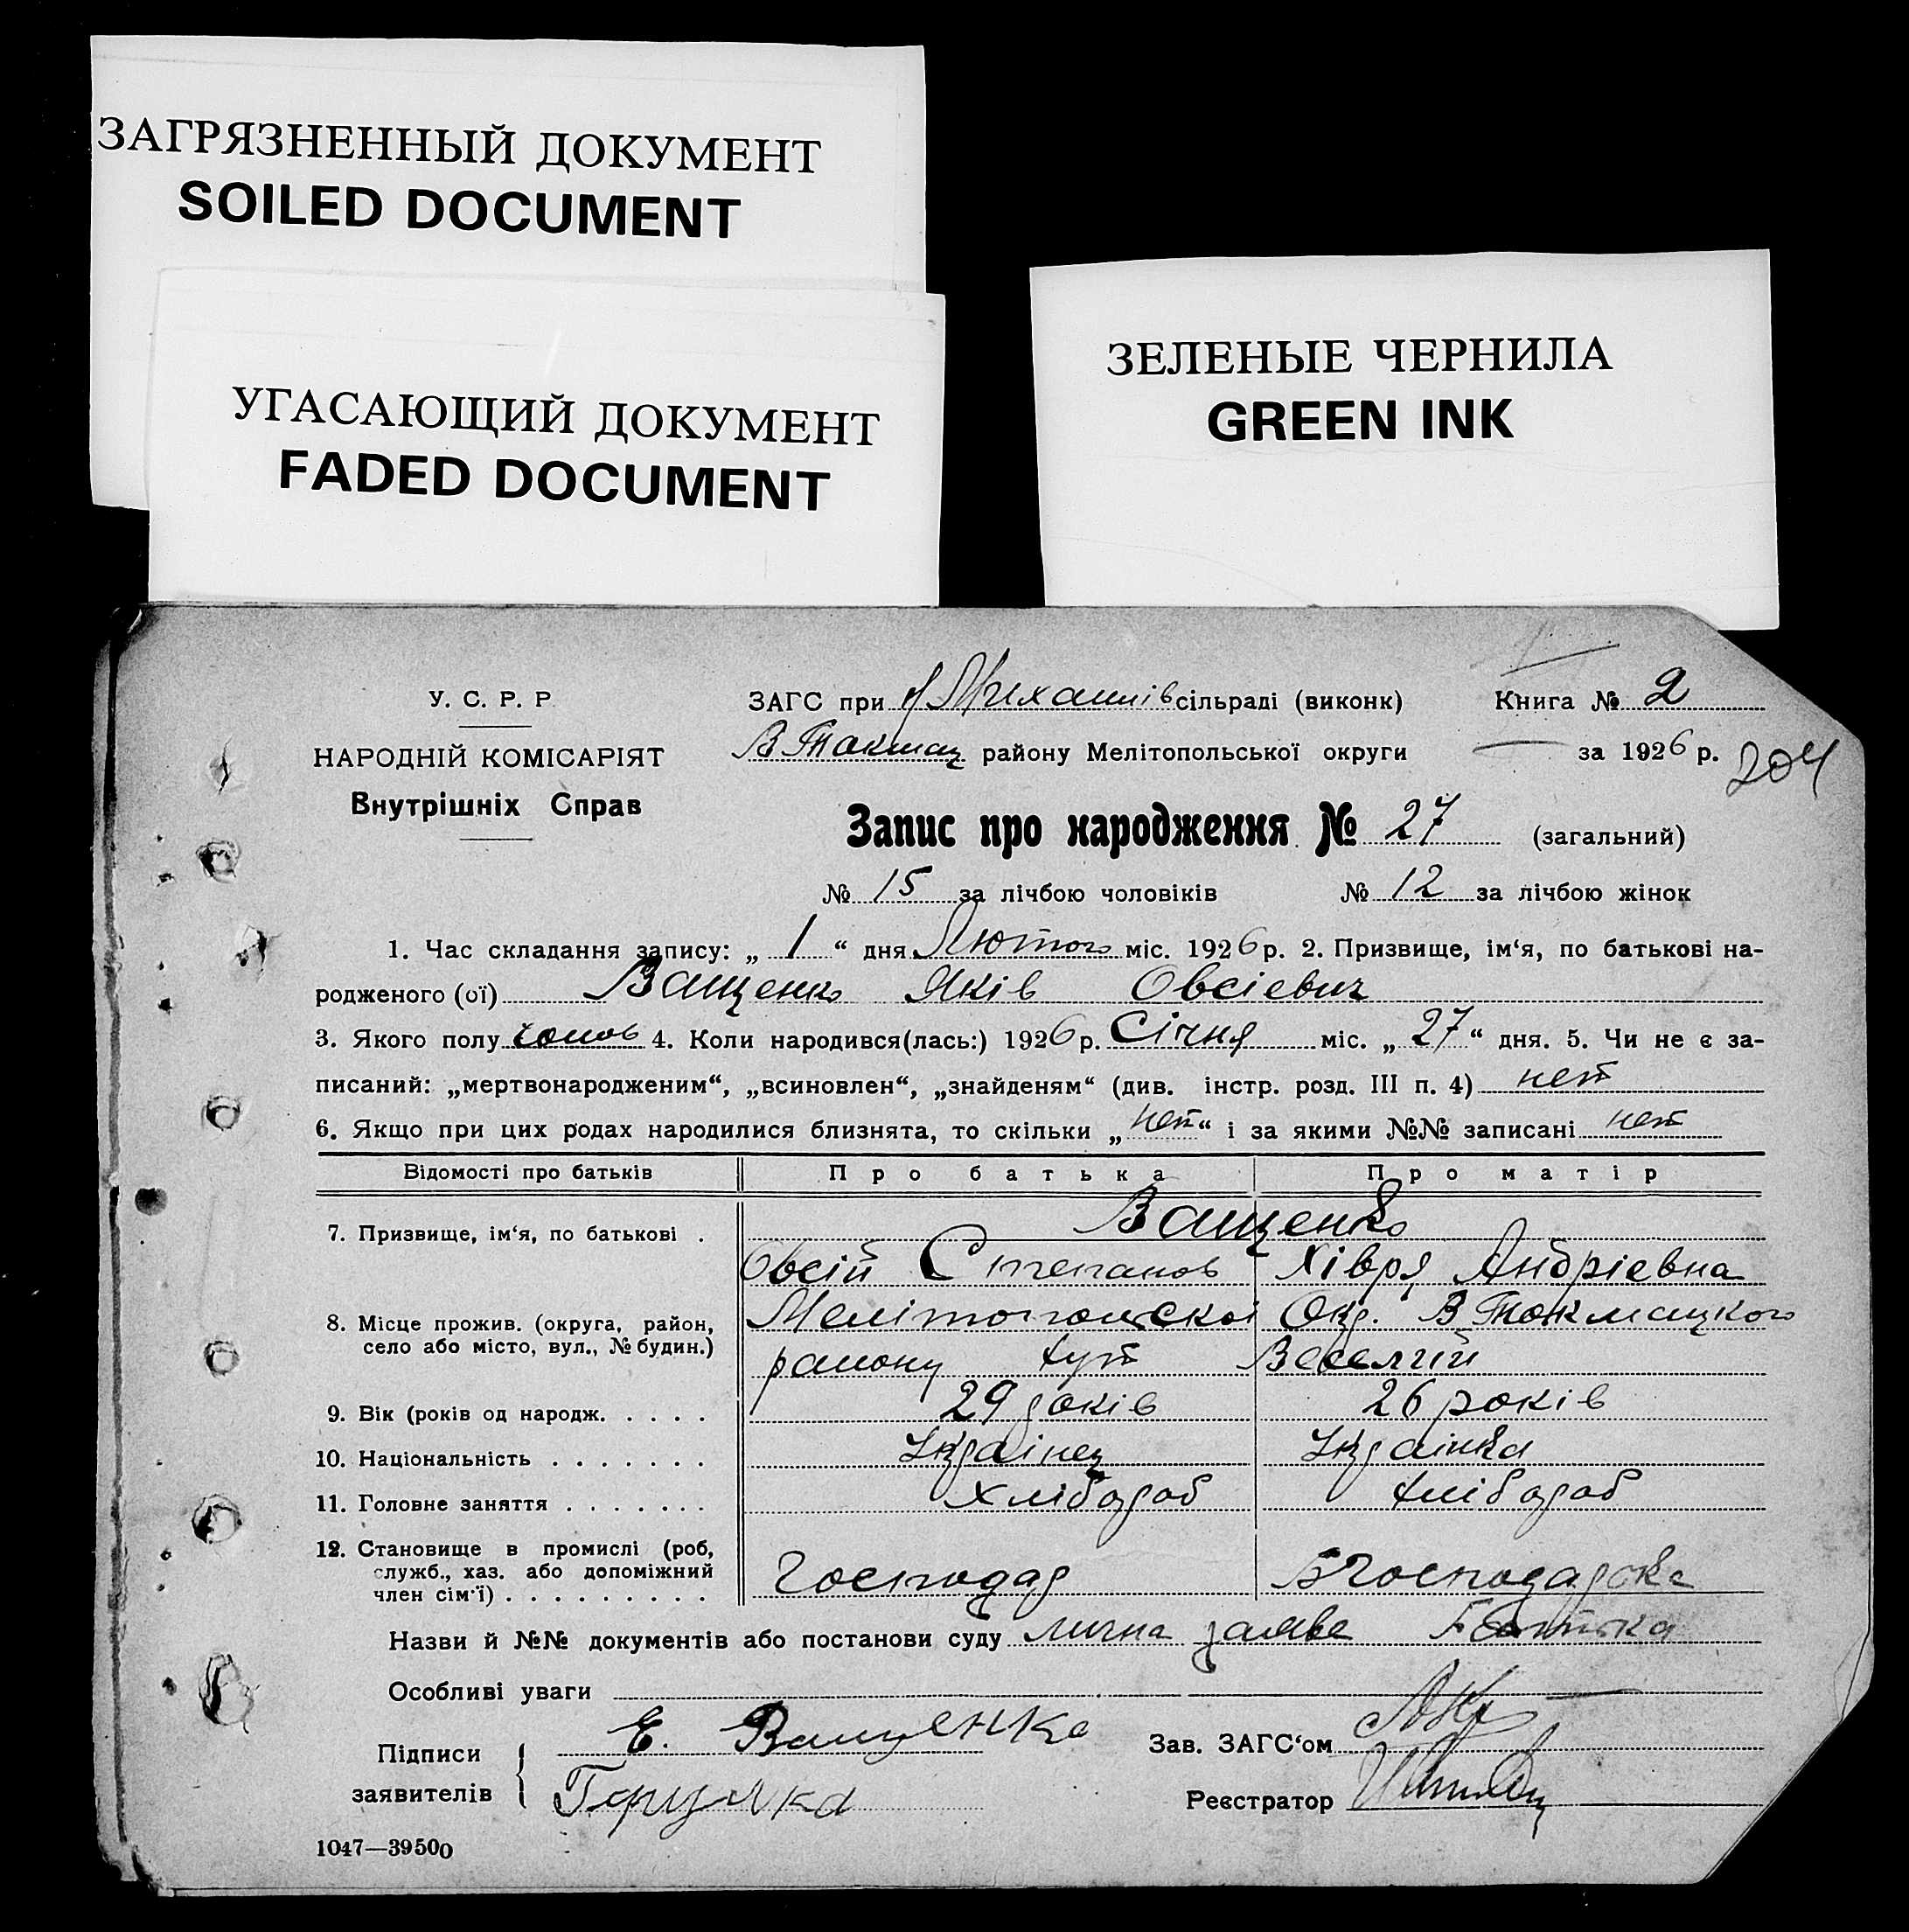 ЗАГРЯЗНЕННЫЙ ДОКУМЕНТ
SOILED DOCUMENT
УГАСАЮЩИЙ ДОКУМЕНТ
FADED DOCUMENT
ЗЕЛЕНЫЕ ЧЕРНИЛА
GREEN INK
У. С. Р. Р
НАРОДНІЙ КОМІСАРІЯТ
Внутрішніх Справ
ЗАГС при Михайлів сільраді (виконк) Книга № 2
В Токмац району Мелітопольської округи за 1926 р. 204
Запис про народження № 27 (загальний)
№ 15 за лічбою чоловіків № 12 за лічбою жінок
1. Час складання запису: „ 1 “ дня Лютого міс. 1926 р. 2. Призвище, ім‘я, по батькові на-
родженого (ої) Ващенко Яків Овсієвич
3. Якого полу чолов 4. Коли народився(лась:) 1926 р. Січня міс. „ 27 “ дня. 5. Чи не є за-
писаний: „мертвонародженим“, „всиновлен“, „знайденям“ (див. інстр. розд. III п. 4) нет
6. Якщо при цих родах народилися близнята, то скільки „ нет “ і за якими №№ записані нет
Відомості про батьків Про батька Про матір
7. Призвище, ім‘я, по батькові . Ващенко
Овсій Степанов Хівря Андріевна
8. Місце прожив. (округа, район,
село або місто, вул., № будин.)
Мелітопольскоі Окр. В Токмацкого
району хут Веселий
9. Вік (років од народж. . . . . 29 років 26 років
10. Національність . . . . . . . Украінец Украінка
11. Головне заняття . . . . . . . Хлібороб хлібороб
12. Становище в промислі (роб,
служб., хаз. або допоміжний
член сім‘ї) . . . . . . . . . Господар Господарка
Назви й №№ документів або постанови суду лична заява Батька
Особливі уваги
Підписи
заявителів
Е. Ващенко
Зав. ЗАГС‘ом
Реєстратор
1047—39500